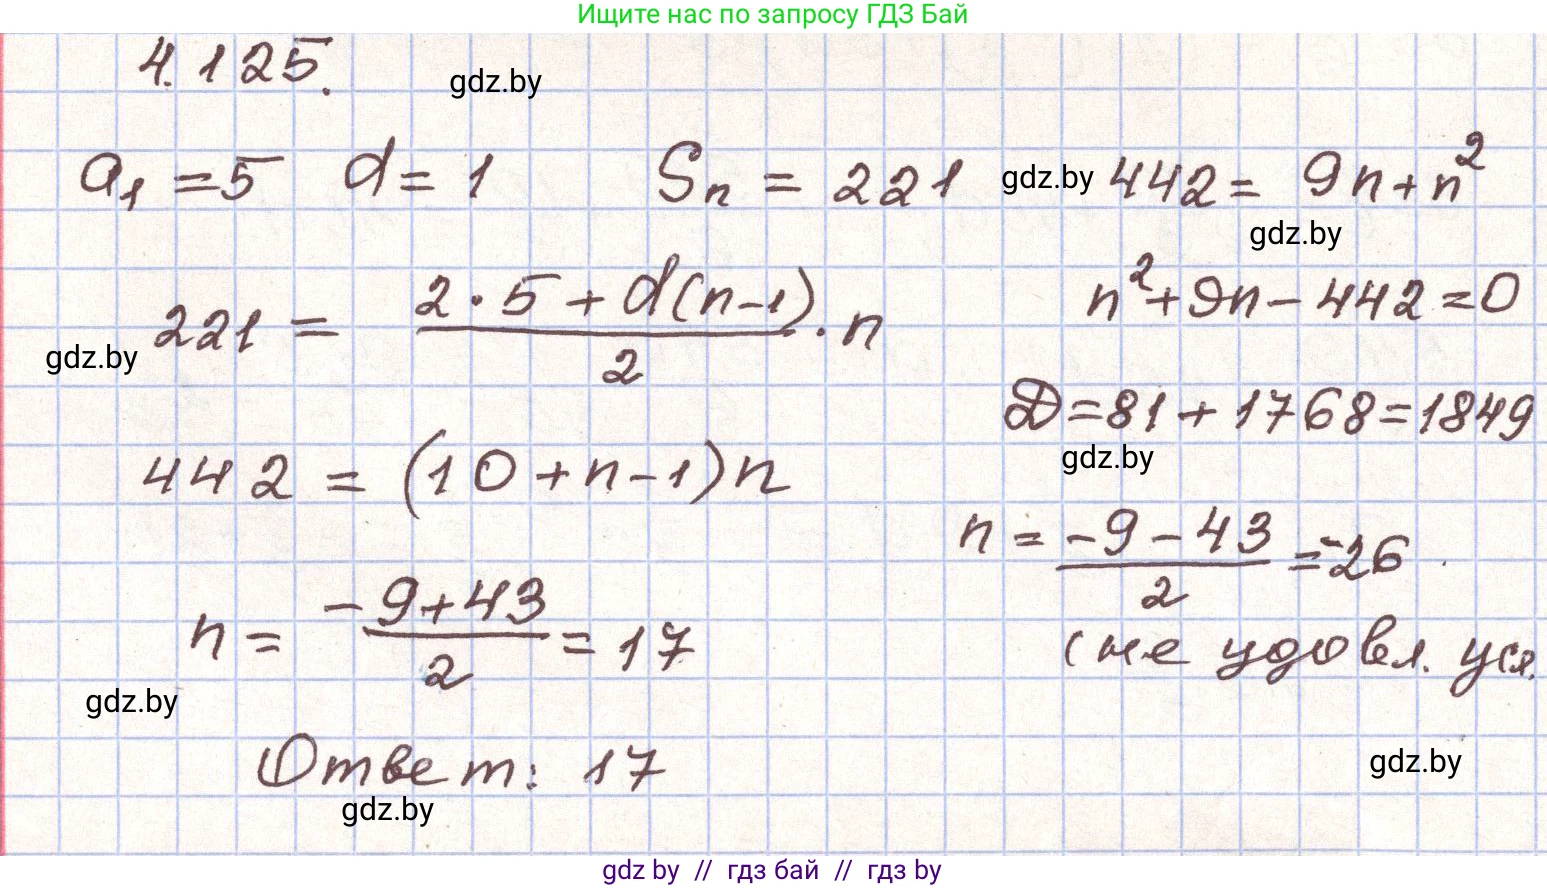 Ищите нас по запросу ГДЗ Бай
4.125.
gdz.by
a₁ = 5 d = 1 Sₙ = 221
gdz.by
442 = 9n + n²
gdz.by
221 = (2 · 5 + d(n - 1))/2 · n
n² + 9n - 442 = 0
gdz.by
D = 81 + 1768 = 1849
gdz.by
442 = (10 + n - 1)n
n = (-9 - 43)/2 = -26
(не удовл. усл.
n = (-9 + 43)/2 = 17
gdz.by
Ответ: 17
gdz.by
gdz.by
gdz by // гдз бай // гдз by